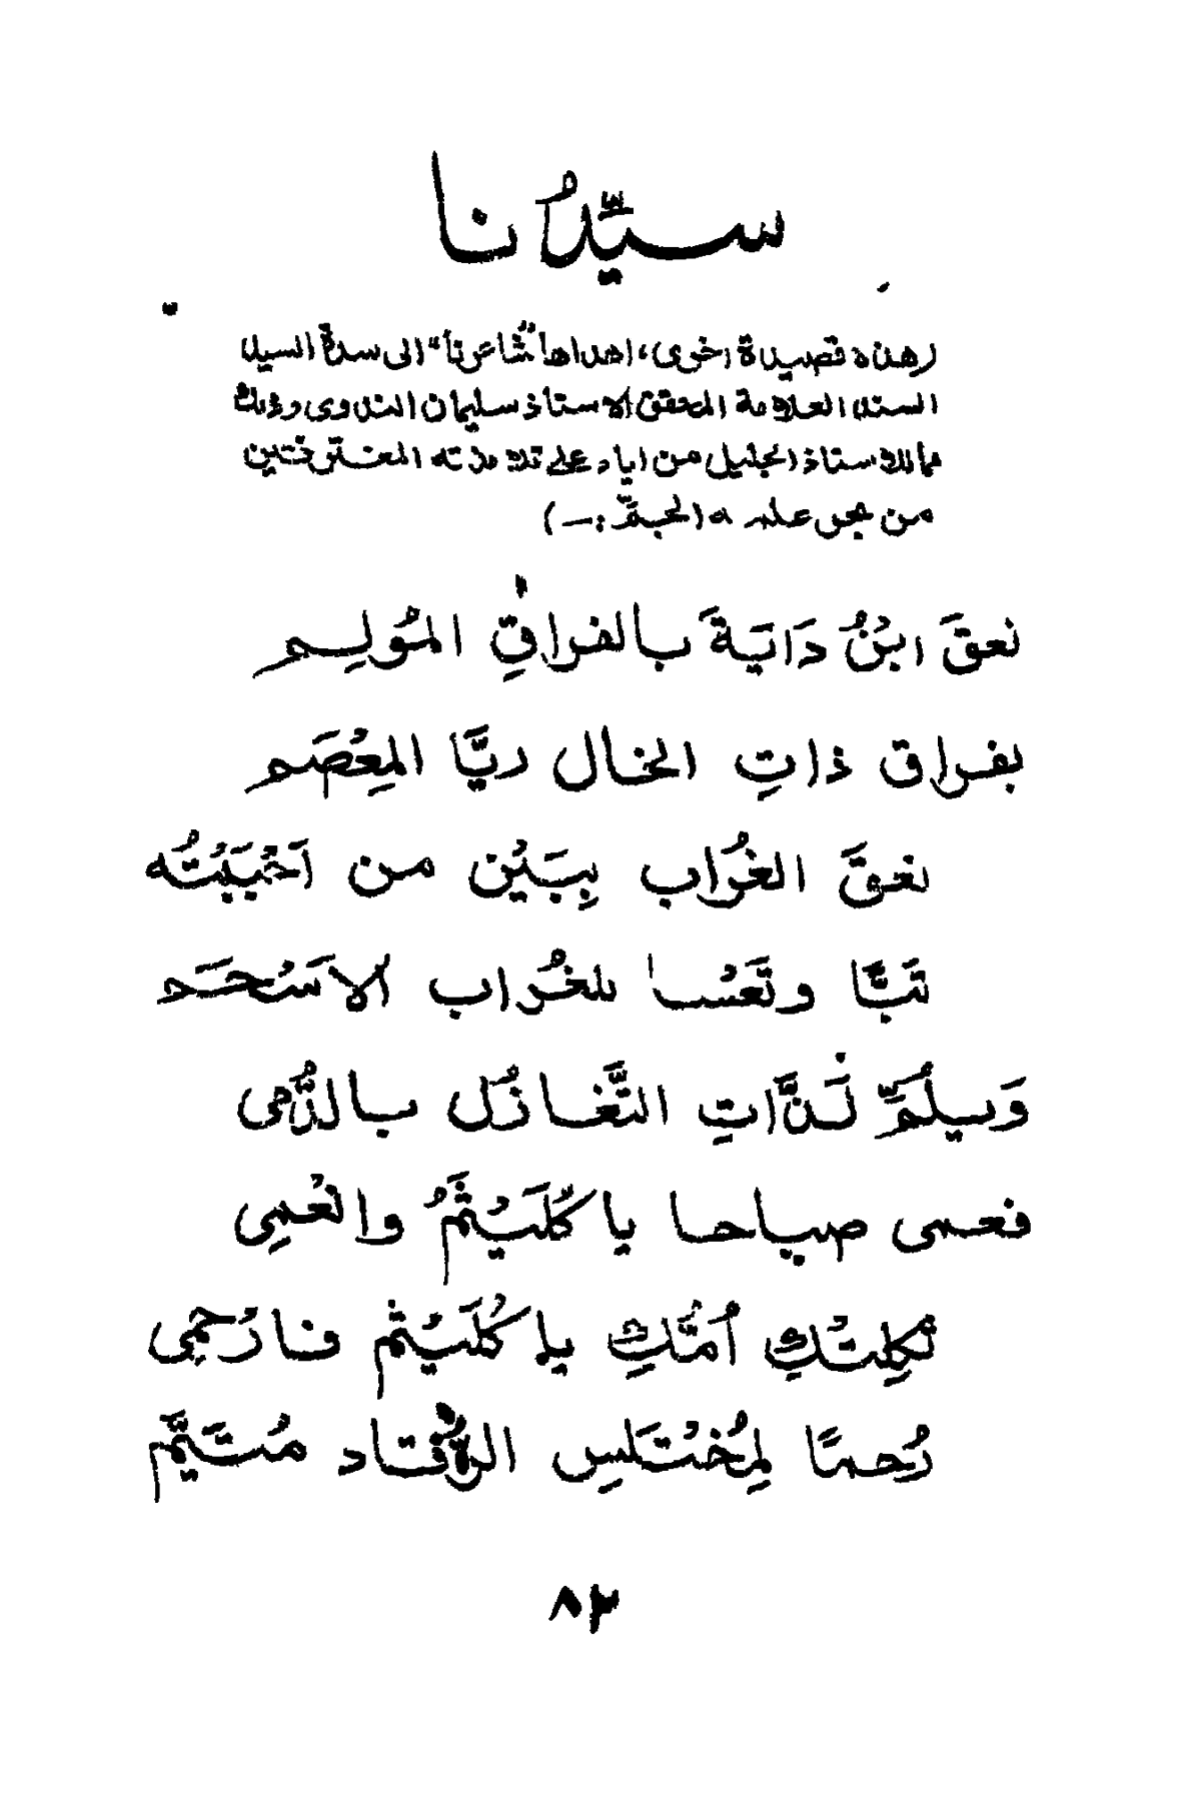 سيِّدُنا
(هذه قصيدة اخرى، اهداها "شاعرنا" الى سدة السيد
السند العلامة المحقق الاستاذ سليمان الندوى وذلك
مما للاستاذ الجليل من اياد على تلامذته المغترفين
من بحر علمه الجمّ :—)
نعقَ ابْنُ دَايَةَ بالفراقِ المُولِم
بفراق ذاتِ الخال ريَّا المِعْصَم
نغقَ الغُرَاب بِبَيْن من اَحْبَبْتُه
تَبًّا وتَعْسا للغُراب الاَسْحَم
وَيلُمِّ لَذَّاتِ التَّغازُل بالدُّمى
فعمى صباحا يا كُلَيْثَمُ وانْعمِى
ثكِلتْكِ اُمُّكِ يا كُلَيْثم فارْحمِى
رُحمًا لِمُخْتَلَسِ الفُؤاد مُتَيَّم
٨٣